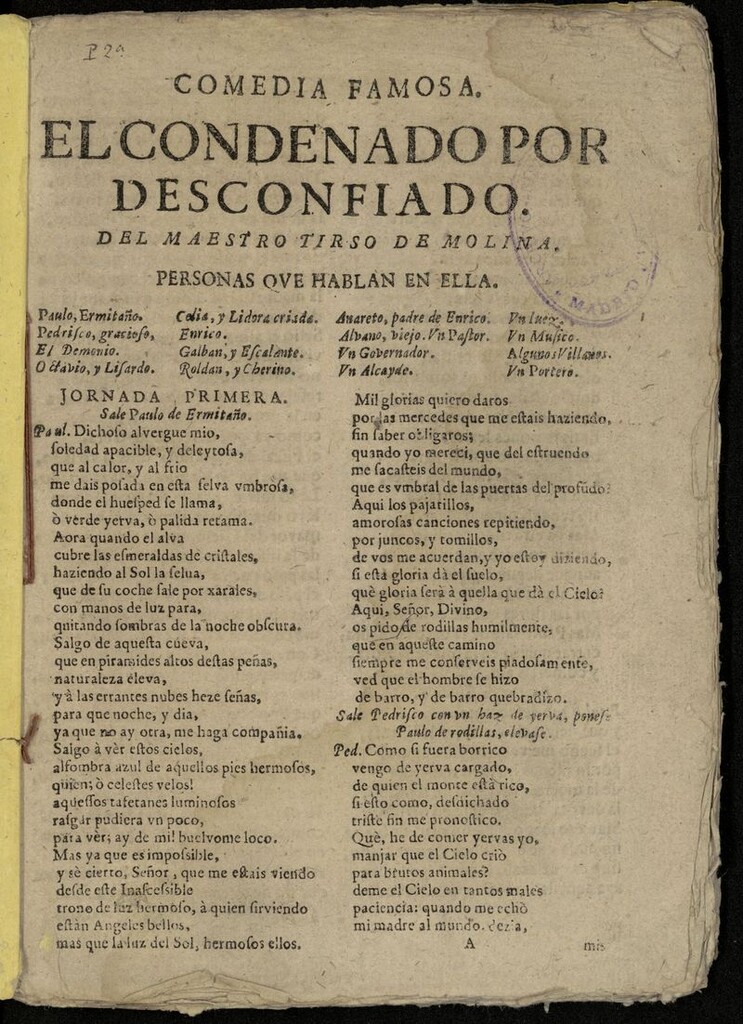 P 29
COMEDIA FAMOSA.
EL CONDENADO POR
DESCONFIADO.
DEL MAESTRO TIRSO DE MOLINA.
PERSONAS QVE HABLAN EN ELLA.
Paulo, Ermitaño.
Pedriſco, gracioſo,
El Demonio.
Octavio, y Liſardo.
Celia, y Lidora criada.
Enrico.
Galban, y Eſcalante.
Roldan, y Cherino.
Anareto, padre de Enrico.
Alvano, viejo. Vn Paſtor.
Vn Governador.
Vn Alcayde.
Vn Iuez.
Vn Muſico.
Algunos Villanos.
Vn Portero.
JORNADA PRIMERA.
Sale Paulo de Ermitaño.
Paul. Dichoſo alvergue mio,
ſoledad apacible, y deleytoſa,
que al calor, y al frio
me dais poſada en eſta ſelva vmbroſa,
donde el hueſped ſe llama,
ò verde yerva, ò palida retama.
Aora quando el alva
cubre las eſmeraldas de criſtales,
haziendo al Sol la ſelua,
que de ſu coche ſale por xarales,
con manos de luz para,
quitando ſombras de la noche obſcura.
Salgo de aqueſta cueva,
que en piramides altos deſtas peñas,
naturaleza eleva,
y à las errantes nubes heze ſeñas,
para que noche, y dia,
ya que no ay otra, me haga compañia.
Salgo à vèr eſtos cielos,
alfombra azul de aquellos pies hermoſos,
quien; ò celeſtes velos!
aqueſſos tafetanes luminoſos
raſgar pudiera vn poco,
para vèr; ay de mi! buelvome loco.
Mas ya que es impoſsible,
y sè cierto, Señor, que me eſtais viendo
deſde eſte Inaſceſsible
trono de luz hermoſo, à quien ſirviendo
eſtàn Angeles bellos,
mas que la luz del Sol, hermoſos ellos.
Mil glorias quiero daros
por las mercedes que me eſtais haziendo,
ſin ſaber obligaros;
quando yo mereci, que del eſtruendo
me ſacaſteis del mundo,
que es vmbral de las puertas del profũdo?
Aqui los pajarillos,
amoroſas canciones repitiendo,
por juncos, y tomillos,
de vos me acuerdan, y yo eſtoy diziendo,
ſi eſta gloria dà el ſuelo,
què gloria ſerà à quella que dà el Cielo?
Aqui, Señor, Divino,
os pido de rodillas humilmente,
que en aqueſte camino
ſiempre me conſerveis piadoſamente,
ved que el hombre ſe hizo
de barro, y de barro quebradizo.
Sale Pedriſco con vn haz de yerva, poneſe
Paulo de rodillas, elevaſe.
Ped. Como ſi fuera borrico
vengo de yerva cargado,
de quien el monte eſtà rico,
ſi eſto como, deſdichado
triſte fin me pronoſtico.
Què, he de comer yervas yo,
manjar que el Cielo criò
para brutos animales?
deme el Cielo en tantos males
paciencia: quando me echò
mi madre al mundo, dezia,
A
mis
MADRID